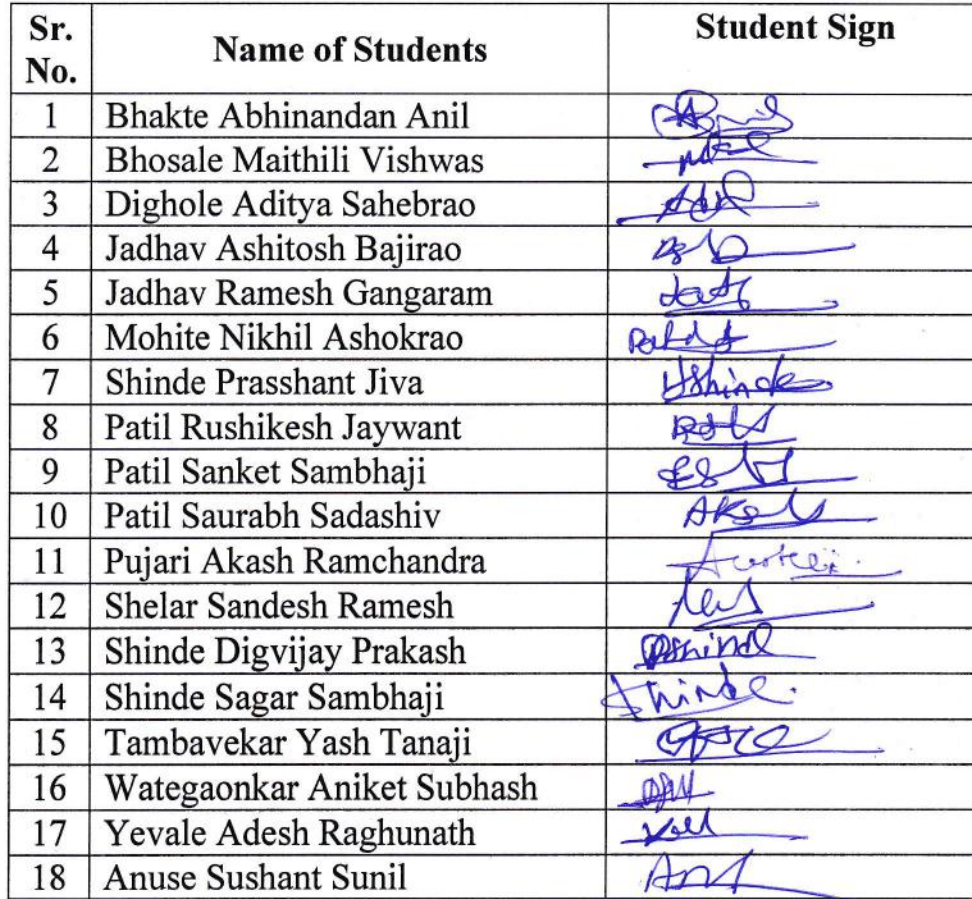 Sr. No. Name of Students Student Sign
1 Bhakte Abhinandan Anil
2 Bhosale Maithili Vishwas
3 Dighole Aditya Sahebrao
4 Jadhav Ashitosh Bajirao
5 Jadhav Ramesh Gangaram
6 Mohite Nikhil Ashokrao
7 Shinde Prasshant Jiva
8 Patil Rushikesh Jaywant
9 Patil Sanket Sambhaji
10 Patil Saurabh Sadashiv
11 Pujari Akash Ramchandra
12 Shelar Sandesh Ramesh
13 Shinde Digvijay Prakash
14 Shinde Sagar Sambhaji
15 Tambavekar Yash Tanaji
16 Wategaonkar Aniket Subhash
17 Yevale Adesh Raghunath
18 Anuse Sushant Sunil